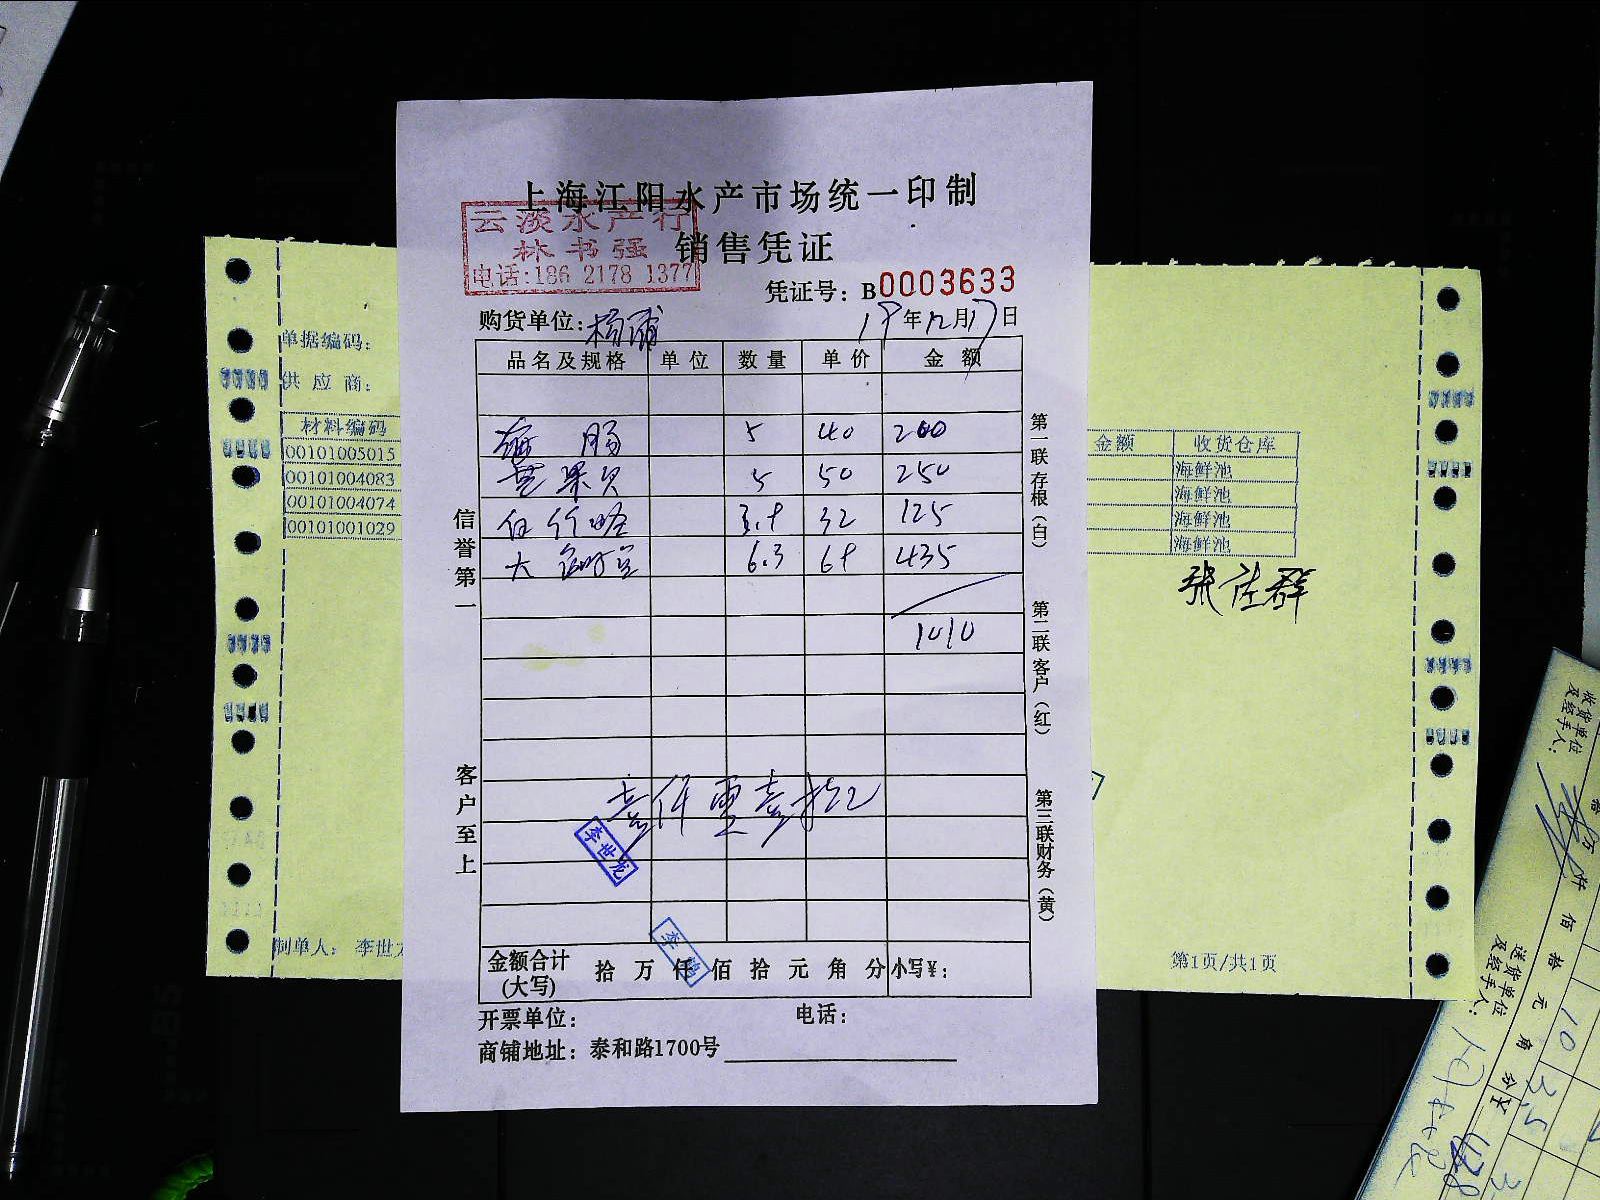 上海江阳水产市场统一印制
云淡水产行
林书强
电话:186 2178 1377
销售凭证
凭证号：B0003633
购货单位：杨浦 19年12月17日
品名及规格 单位 数量 单价 金额
海肠 5 40 200
苹果贝 5 50 250
3.9 32 125
大 6.3 69 435
1010
信誉第一
客户至上
第一联存根（白）
第二联客户（红）
第三联财务（黄）
李世龙
李
金额合计(大写) 拾 万 仟 佰 拾 元 角 分 小写¥：
开票单位：
电话：
商铺地址：泰和路1700号
单据编码：
供应商：
材料编码
00101005015
00101004083
00101004074
00101001029
制单人： 李世
金额 收货仓库
海鲜池
海鲜池
海鲜池
海鲜池
张佐群
第1页/共1页
收货单位及经手人：
送货单位及经手人：
仟 佰 拾 元 角 分
10
3.5